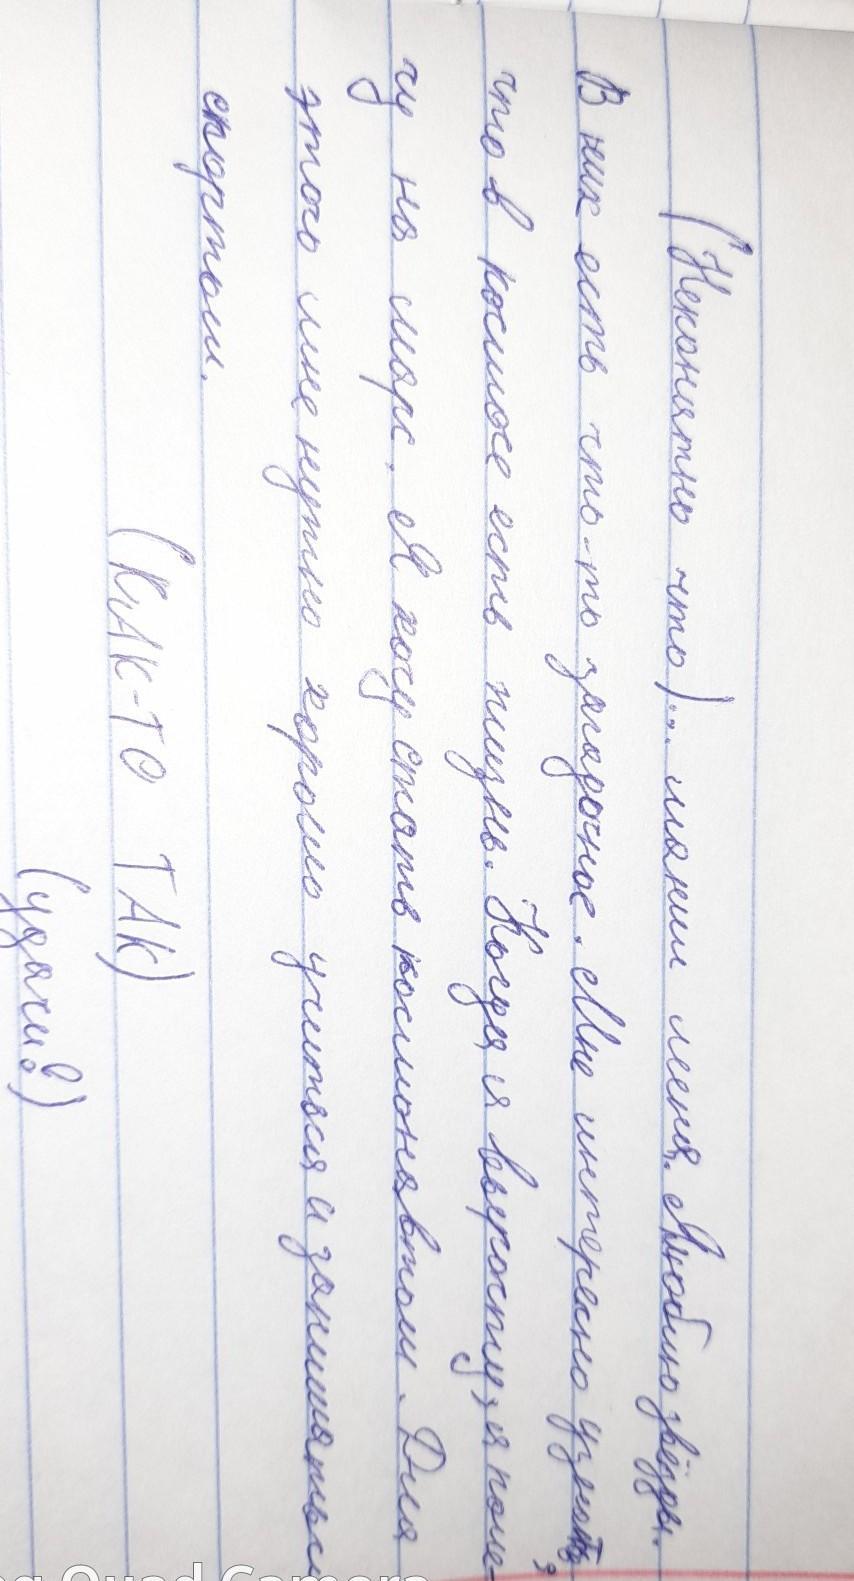 (Непонятно что)... манил меня. Люблю звёзды.
В них есть что-то загадочное. Мне интересно узнать,
что в космосе есть жизнь. Когда я вырасту, я поле-
чу на марс. Я хочу стать космонавтом. Для
этого мне нужно хорошо учиться и заниматься
спортом.
(КАК-ТО ТАК)
(удачи?)
Quad Camera